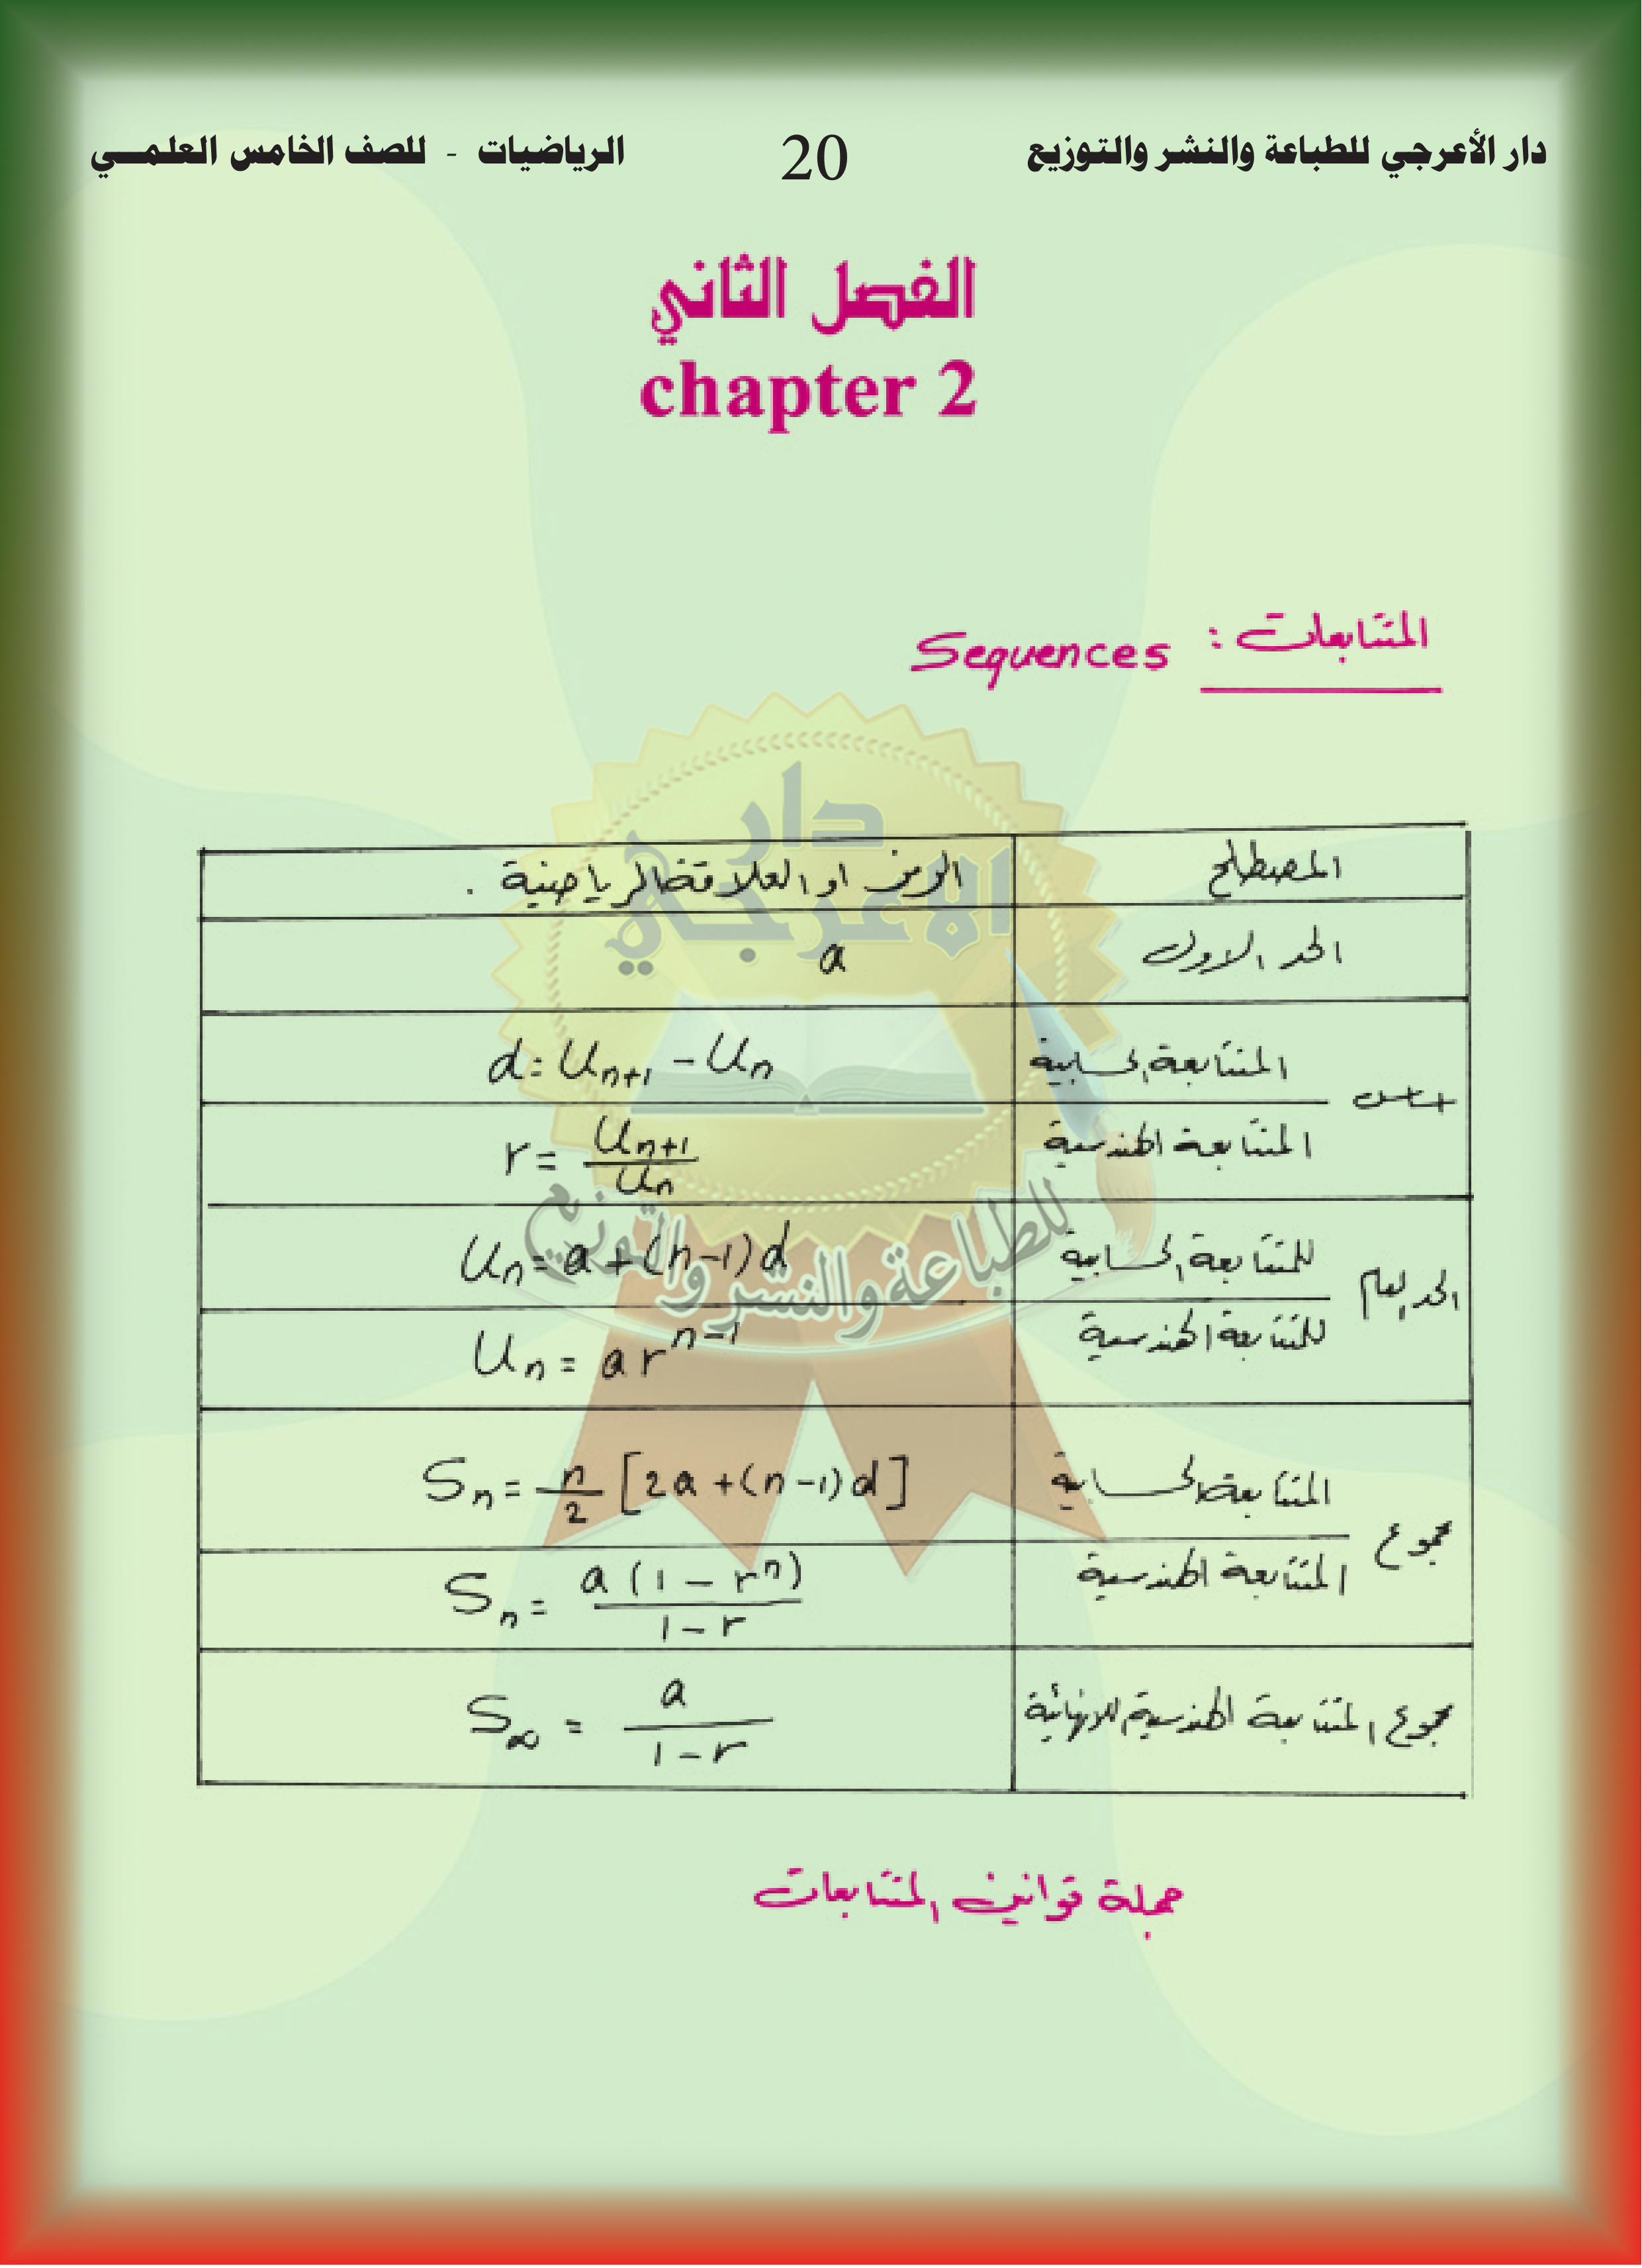 دار الأعرجي للطباعة والنشر والتوزيع 20 الرياضيات - للصف الخامس العلمــي
الفصل الثاني
chapter 2
المتتابعات : Sequences
المصطلح الرمز او العلاقة الرياضية .
الحد الاول a
اساس المتتابعة الحسابية d = Uₙ₊₁ - Uₙ
المتتابعة الهندسية r = Uₙ₊₁ / Uₙ
الحد العام للمتتابعة الحسابية Uₙ = a + (n-1)d
للمتتابعة الهندسية Uₙ = a rⁿ⁻¹
مجموع المتتابعة الحسابية Sₙ = n/2 [2a + (n-1)d]
المتتابعة الهندسية Sₙ = a(1 - rⁿ) / 1 - r
مجموع المتتابعة الهندسية اللانهائية S∞ = a / 1 - r
جملة قوانين المتتابعات
دار
الاعرجي
للطباعة والنشر والتوزيع